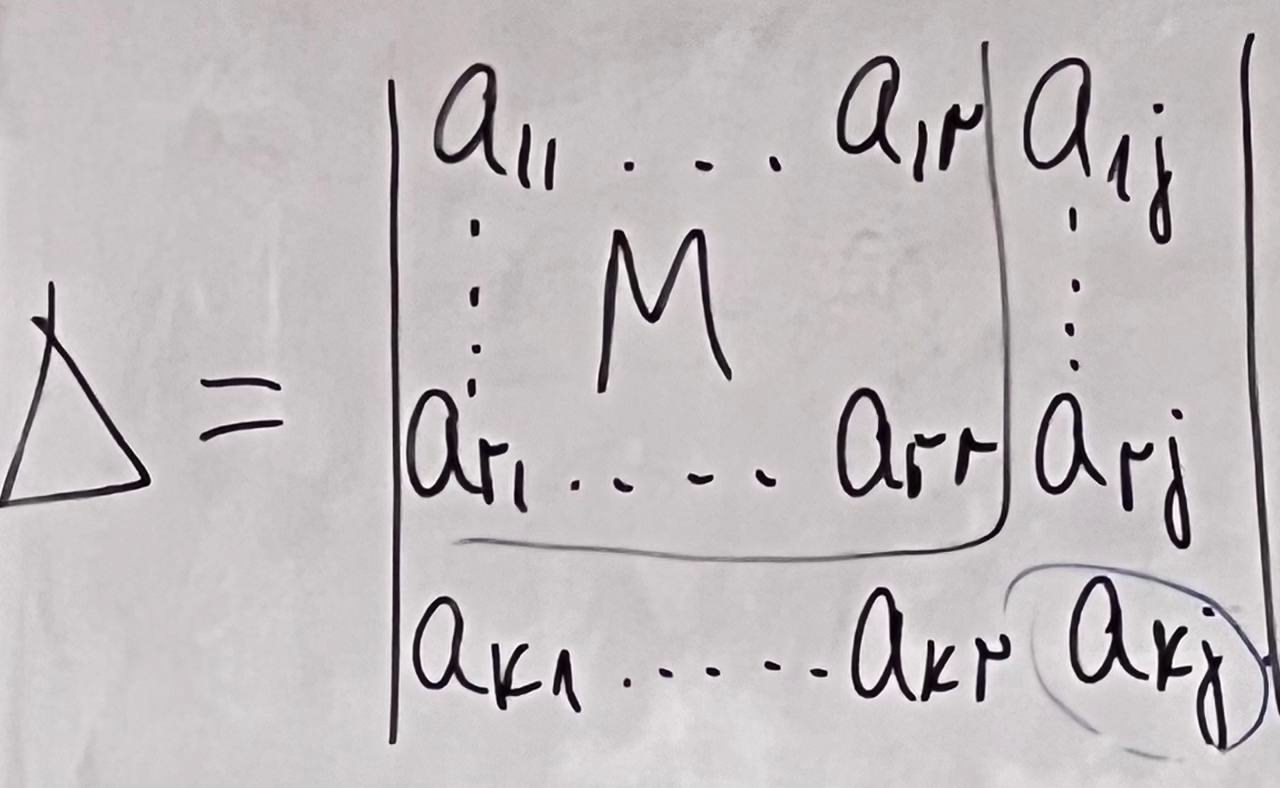 a₁₁ . . . a₁r a₁j
M
Δ =
ar₁ . . . . . arr arj
aк₁ . . . . . . aкr aкj